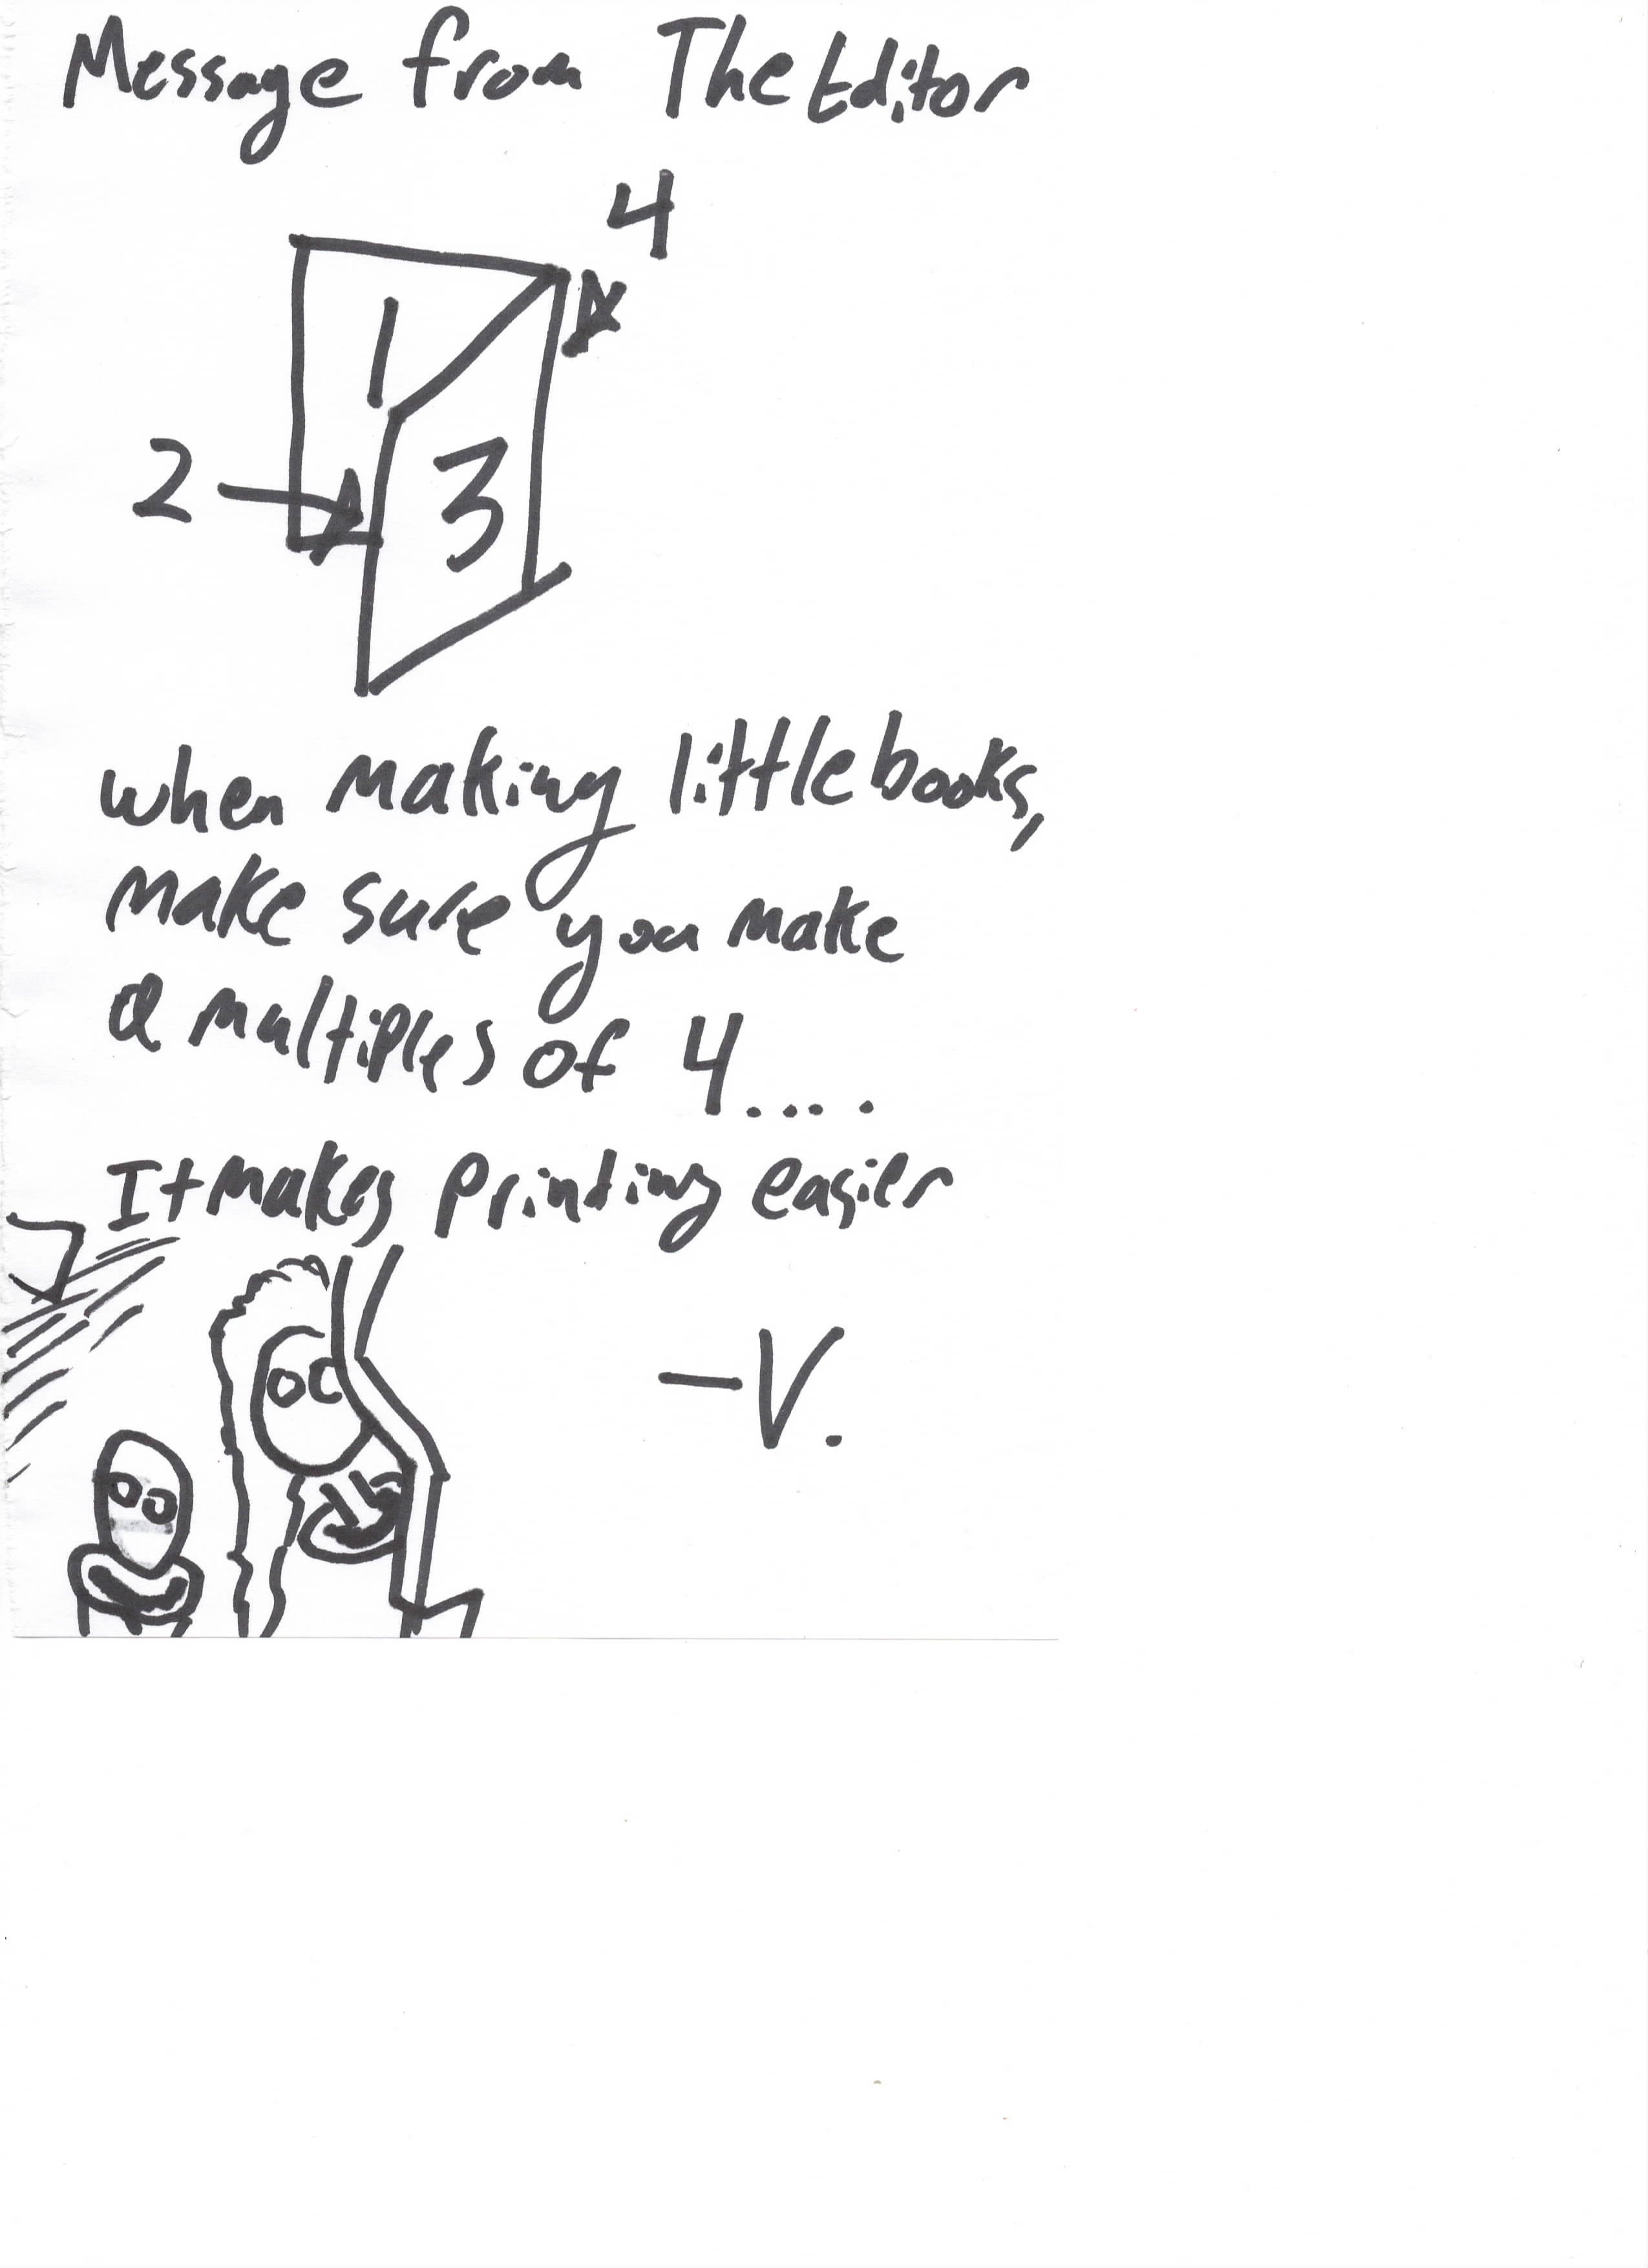 Message from The Editor
4
1
2
3
when making little books,
make sure you make
a multiples of 4....
It makes printing easier
-V.